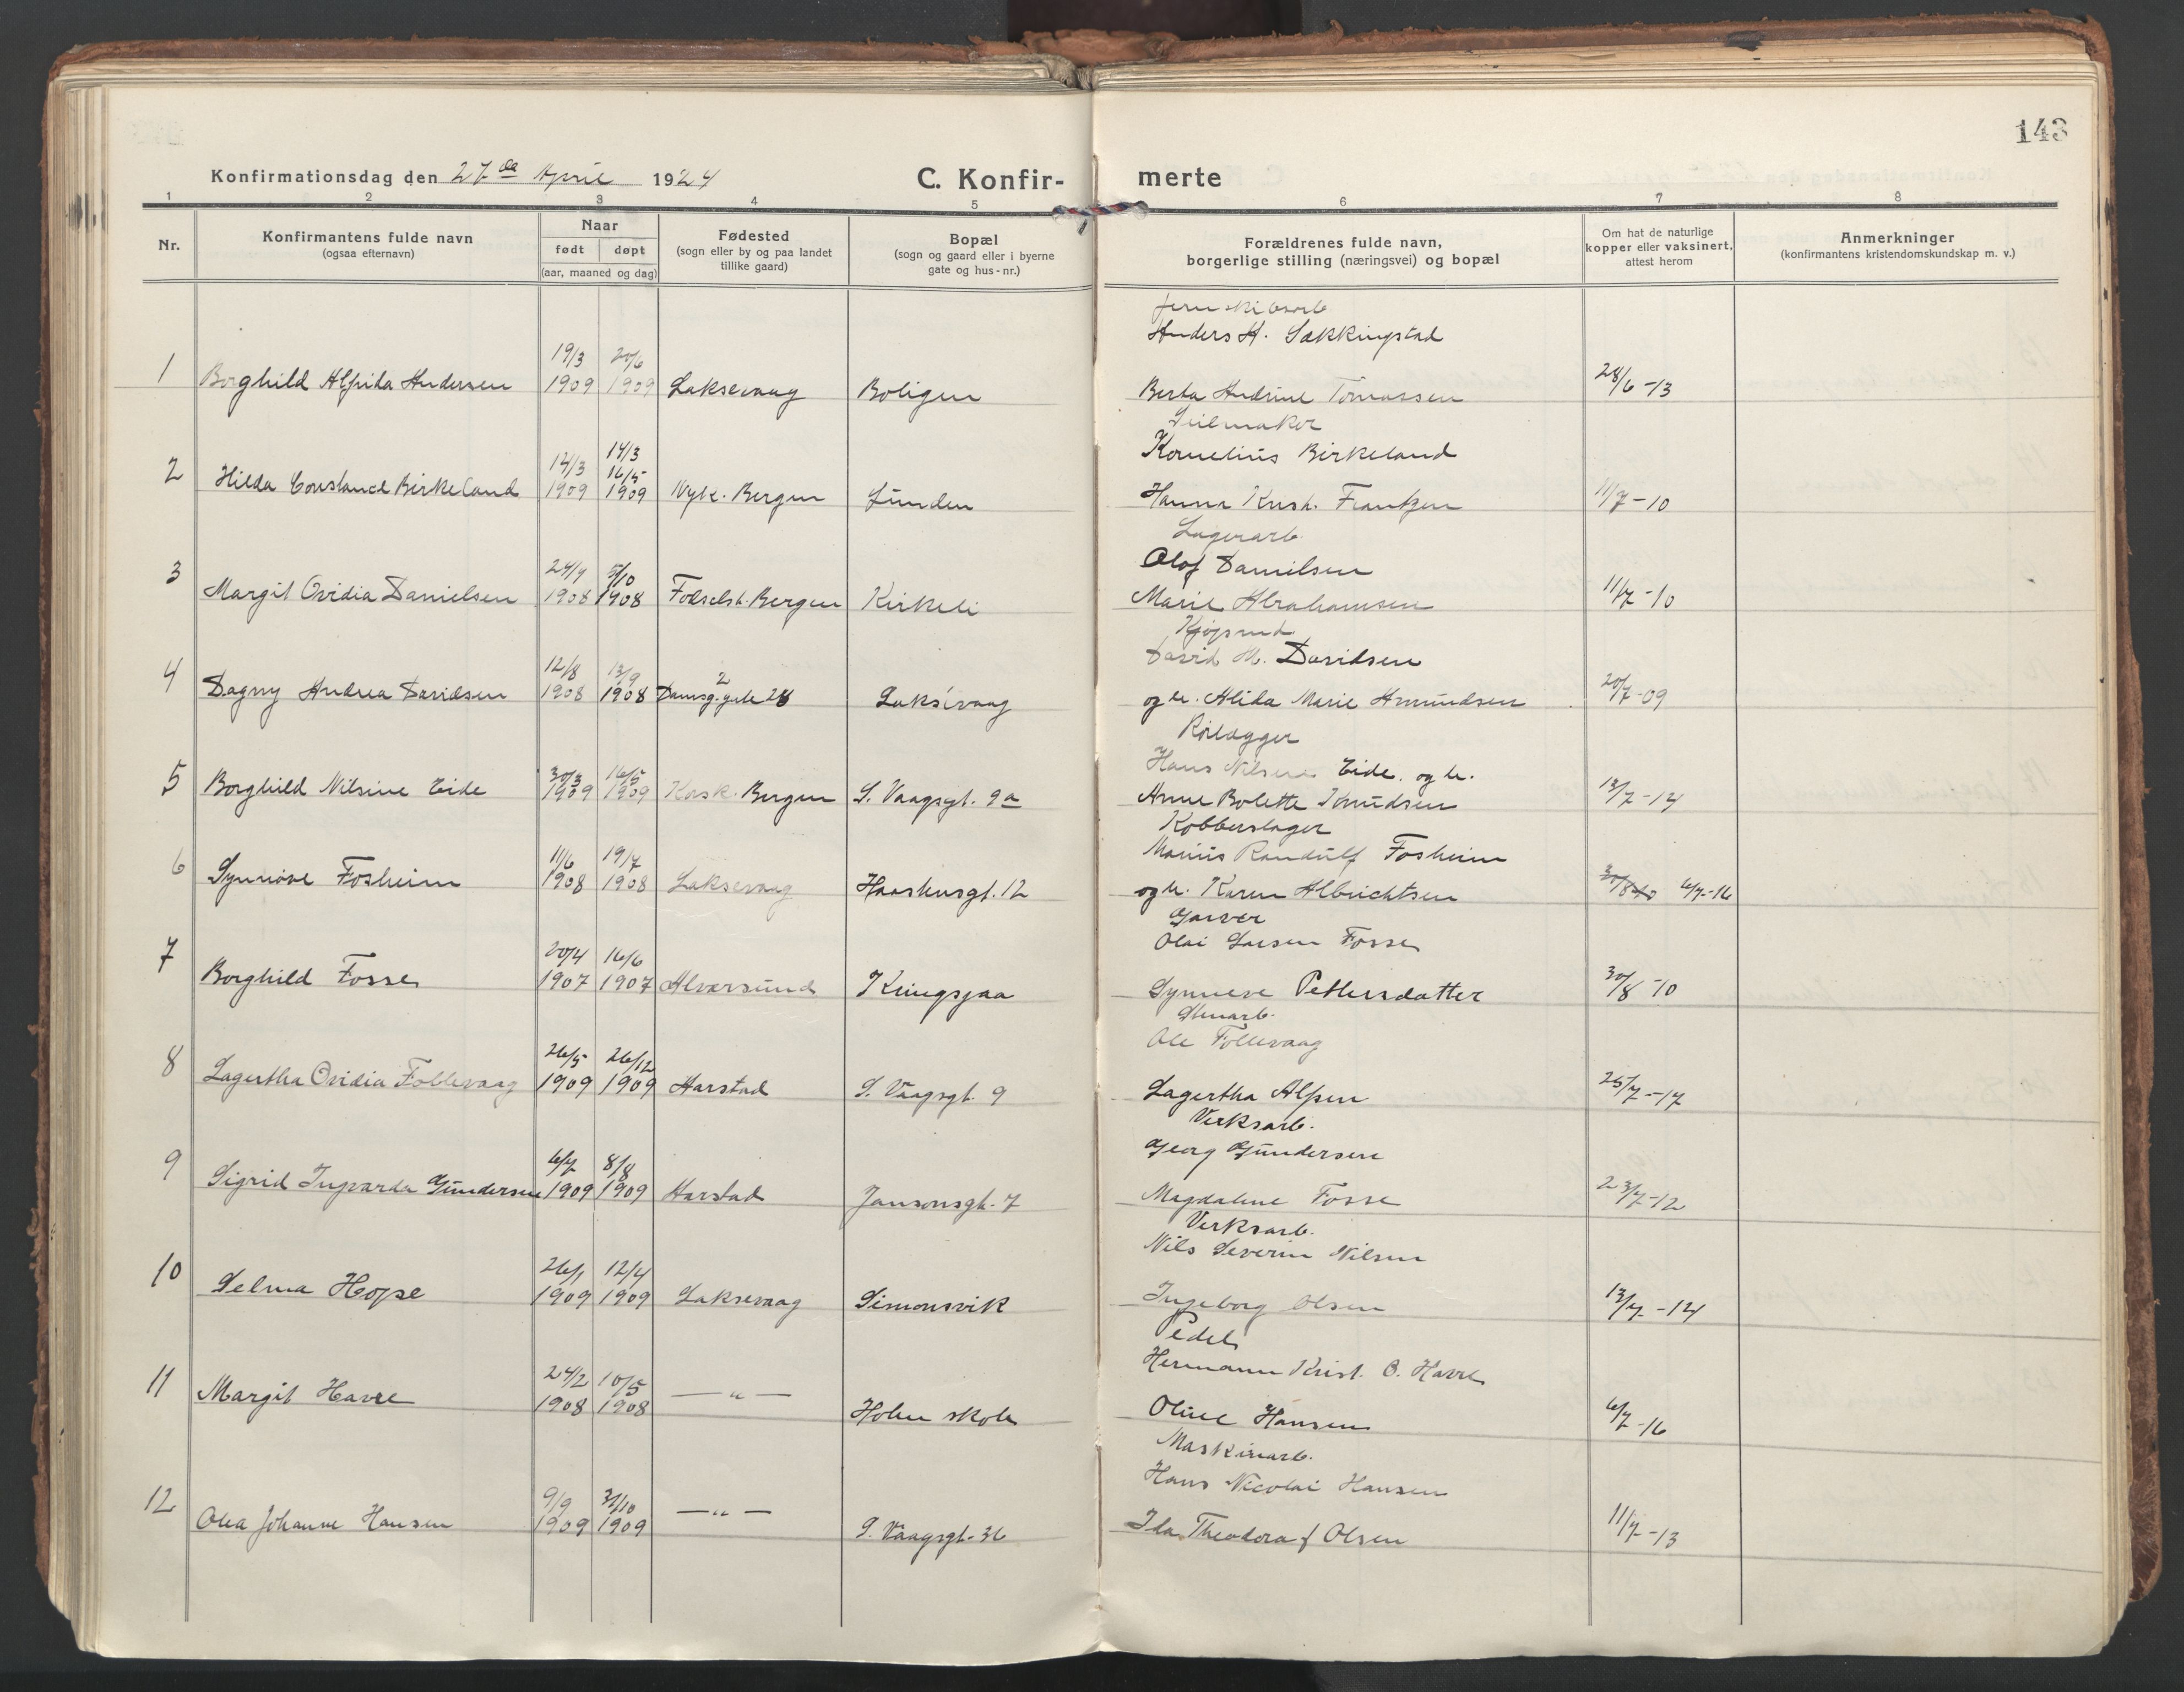 143
Konfirmationsdag den 27de April 1924
C. Konfir-
merte
1 2 3 4 5 6 7 8
Nr.
Konfirmantens fulde navn
(ogsaa efternavn)
Naar
født døpt
(aar, maaned og dag)
Fødested
(sogn eller by og paa landet
tillike gaard)
Bopæl
(sogn og gaard eller i byerne
gate og hus-nr.)
Forældrenes fulde navn,
borgerlige stilling (næringsvei) og bopæl
Om hat de naturlige
kopper eller vaksinert,
attest herom
Anmerkninger
(konfirmantens kristendomskundskap m. v.)
Jernskibsarb
Anders H. Sækkingstad
1 19/3 20/6
Borghild Alfrida Andersen 1909 1909 Laksevaag Boligen Berta Andrine Tomassen 28/6 -13
Seilmaker
14/3
Kornelius Birkeland
2 12/3 16/5
Hilda Constance Birkeland 1909 1909 Nyk. Bergen Lunden Hanna Krist. Frantzen 11/7 -10
Lagerarb.
Olof Danielsen
3 24/9 5/10
Margit Ovidia Danielsen 1908 1908 Fødselst. Bergen Kirkeli Marie Abrahamsen 11/7 -10
Kjøpmd.
David M. Davidsen
4 12/8 13/9 2
Dagny Andrea Davidsen 1908 1908 Damsg.gate 28 Laksevaag og h. Alida Marie Amundsen 20/7 -09
Rørlægger
Hans Nilsen Eide. og h.
5 30/3 16/5
Borghild Nilsine Eide 1909 1909 Korsk. Bergen S. Vaagsgt. 9a Anne Bolette Knudsen 13/7 -14
Kobberslager
Marius Randulf Fosheim
6 11/6 19/7
Synnøve Fosheim 1908 1908 Laksevaag Haashusgt. 12 og h. Karen Albrichtsen 30/8 -10 6/7 -16
Garver
Olai Larsen Fosse
7 20/4 16/6
Borghild Fosse 1907 1907 Alversund Kringsjaa Synneve Pettersdatter 30/8 -10
Stenarb.
Ole Follevaag
8 26/5 26/12
Lagertha Ovidia Follevaag 1909 1909 Harstad S. Vaagsgt. 9 Lagertha Alfsen 25/7 -17
Verksarb.
Georg Gundersen
9 6/7 8/8
Sigrid Ingvarda Gundersen 1909 1909 Harstad Jansonsgt. 7 Magdalene Fosse 23/7 -12
Verksarb.
Nils Severin Nilsen
10 26/1 12/4
Selma Hope 1909 1909 Laksevaag Simonsvik Ingeborg Olsen 13/7 -14
Pedel
Hermann Krist. O. Havre
11 24/2 10/5
Margit Havre 1908 1908 — " — Holen skole Oline Hansen 6/7 -16
Maskinarb.
Hans Nicolai Hansen
12 9/9 31/10
Olea Johanne Hansen 1909 1909 — " — S. Vaagsgt. 36 Ida Theodora f Olsen 11/7 -13